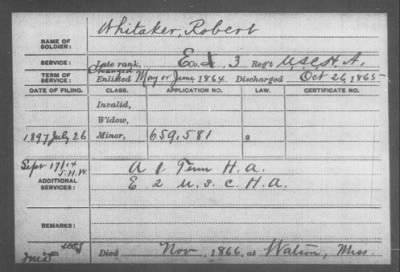 Whitaker, Robert
NAME OF SOLDIER:
SERVICE: Late rank, Co. I, 3 Reg't U.S.C.H.A.
TERM OF SERVICE: Enlisted May or June, 1864. Discharged Oct 26, 1865
DATE OF FILING. CLASS. APPLICATION NO. LAW. CERTIFICATE NO.
Invalid,
Widow,
1897 July 26 Minor, 659,581
Sept 17/14
J.H.W. A 1 Tenn H.A.
ADDITIONAL SERVICES: E 2 U.S.C.H.A.
REMARKS:
Died Nov., 1866, at Watson, Miss.